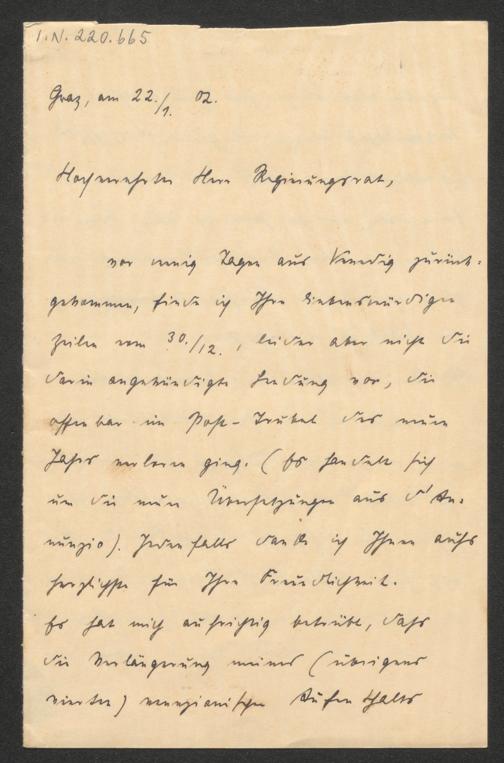 I.N. 220.665
Graz, am 22./1. 02.
Hochverehrter Herr Regierungsrat,
vor wenig Tagen aus Venedig zurück-
gekommen, finde ich Ihre liebenswürdigen
Zeilen vom 30./12., leider aber nicht die
darin angekündigte Sendung vor, die
offenbar im Post-Trubel des neuen
Jahrs verloren ging. (Es handelt sich
um die neuen Übersetzungen aus d'An-
nunzio). Jedenfalls danke ich Ihnen aufs
herzlichste für Ihre Freundlichkeit.
Es hat mich aufrichtig betrübt, dass
die Verlängerung meines (übrigens
vierten) venezianischen Aufenthalts